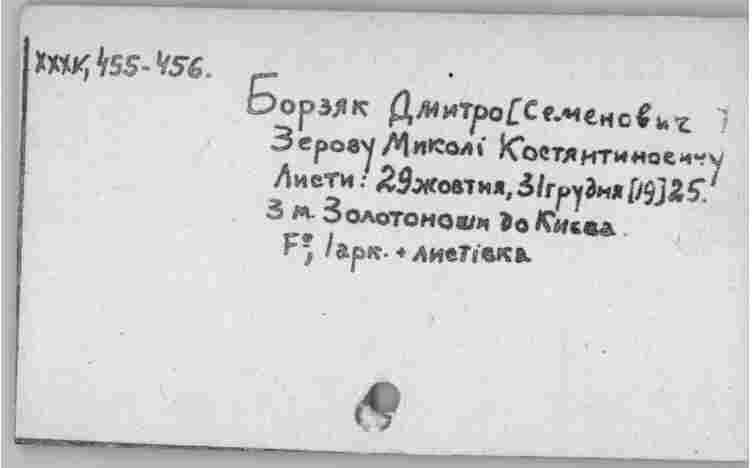 XXXV, 455-456.
Борзяк Дмитро [Семенович]
Зерову Миколі Костянтиновичу
Листи: 29 жовтня, 31 грудня [19]25.
З м. Золотоноши до Києва.
F°, 1 арк. + листівка